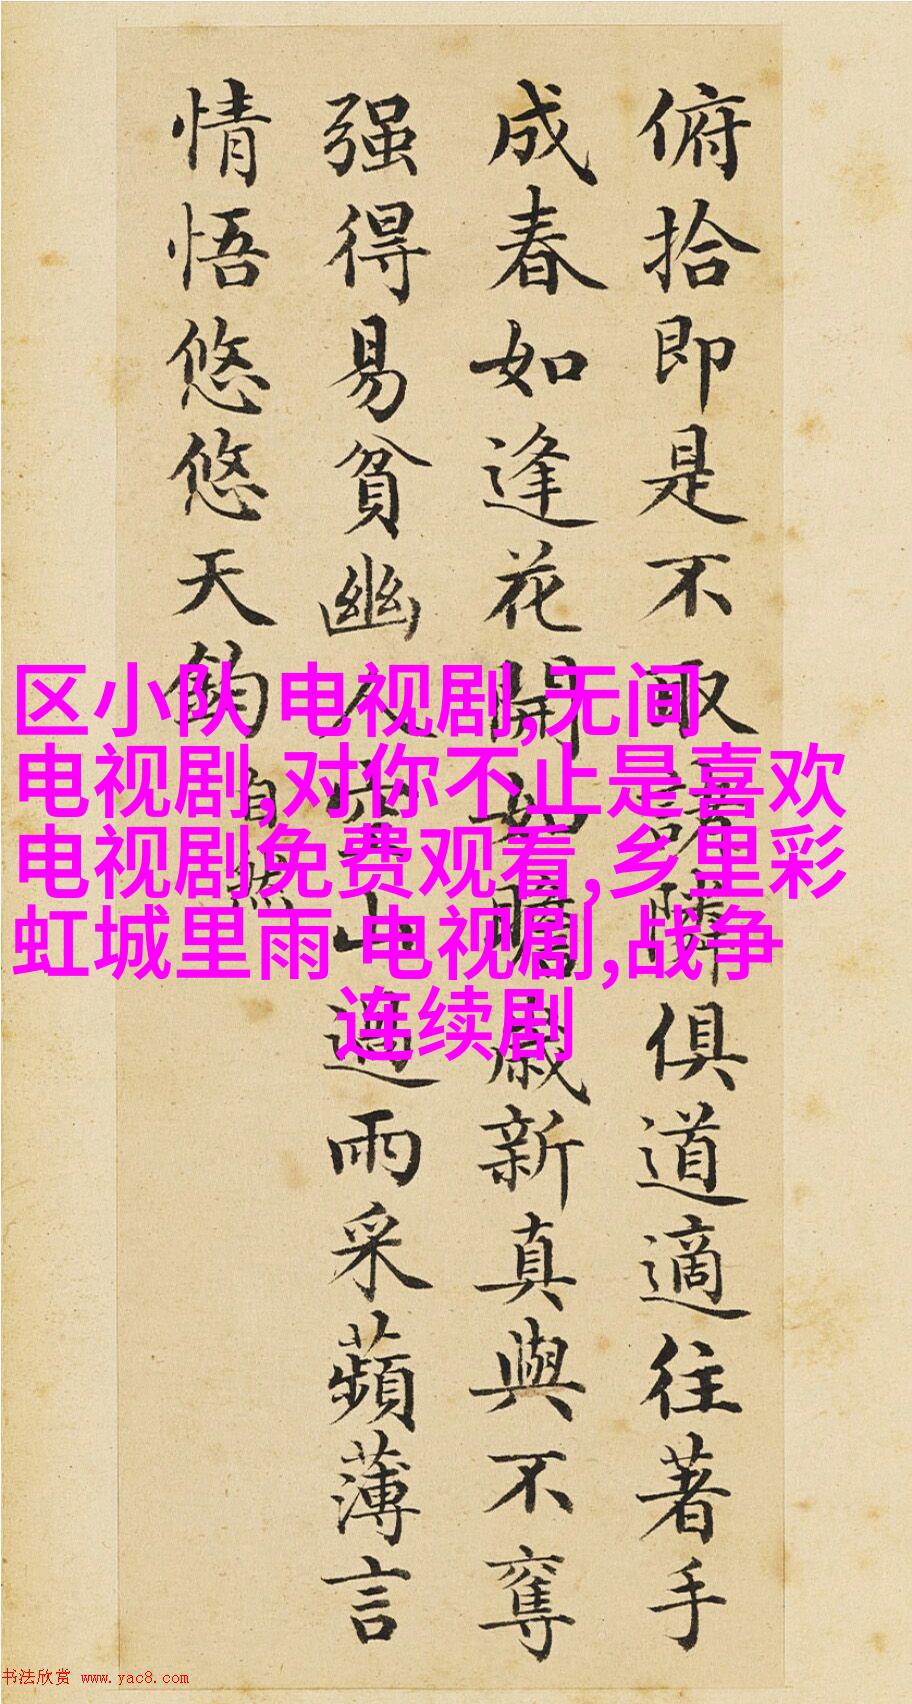 俯拾即是不取諸隣俱道適往著手
成春如逢花開如瞻歲新真與不奪
强得易貧幽人空山過雨采蘋薄言
情悟悠悠天鈞
自然
区小队 电视剧,无间
电视剧,对你不止是喜欢
电视剧免费观看,乡里彩
虹城里雨 电视剧,战争
连续剧
书法欣赏 www.yac8.com